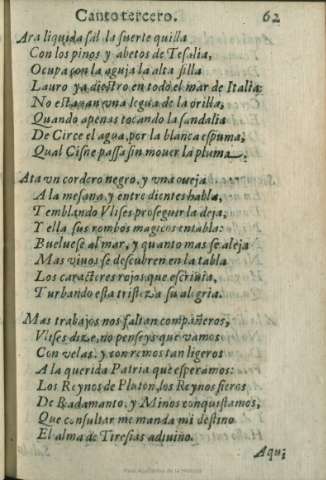 Canto tercero. 62
Ara liquida sal la fuerte quilla
Con los pinos y abetos de Tesalia,
Ocupa con la aguja la alta silla
Lauro ya diestro en todo el mar de Italia:
No estauan vna legua de la orilla,
Quando apenas tocando la sandalia
De Circe el agua, por la blanca espuma,
Qual Cisne passa sin mouer la pluma.
Ata vn cordero negro, y vna oueja
A la mesana, y entre dientes habla,
Temblando Vlises proseguir la deja,
Y ella sus rombos magicos entabla:
Bueluese al mar, y quanto mas se aleja
Mas viuos se descubren en la tabla
Los caracteres rojos que escriuia,
Turbando esta tristeza su alegria.
Mas trabajos nos faltan compañeros,
Vlises dize, no penseys que vamos
Con velas, y con remos tan ligeros
A la querida Patria que esperamos:
Los Reynos de Pluton, los Reynos fieros
De Radamanto, y Minos conquistamos,
Que consultar me manda mi destino
El alma de Tiresias adiuino.
Aqui
Real Academia de la Historia